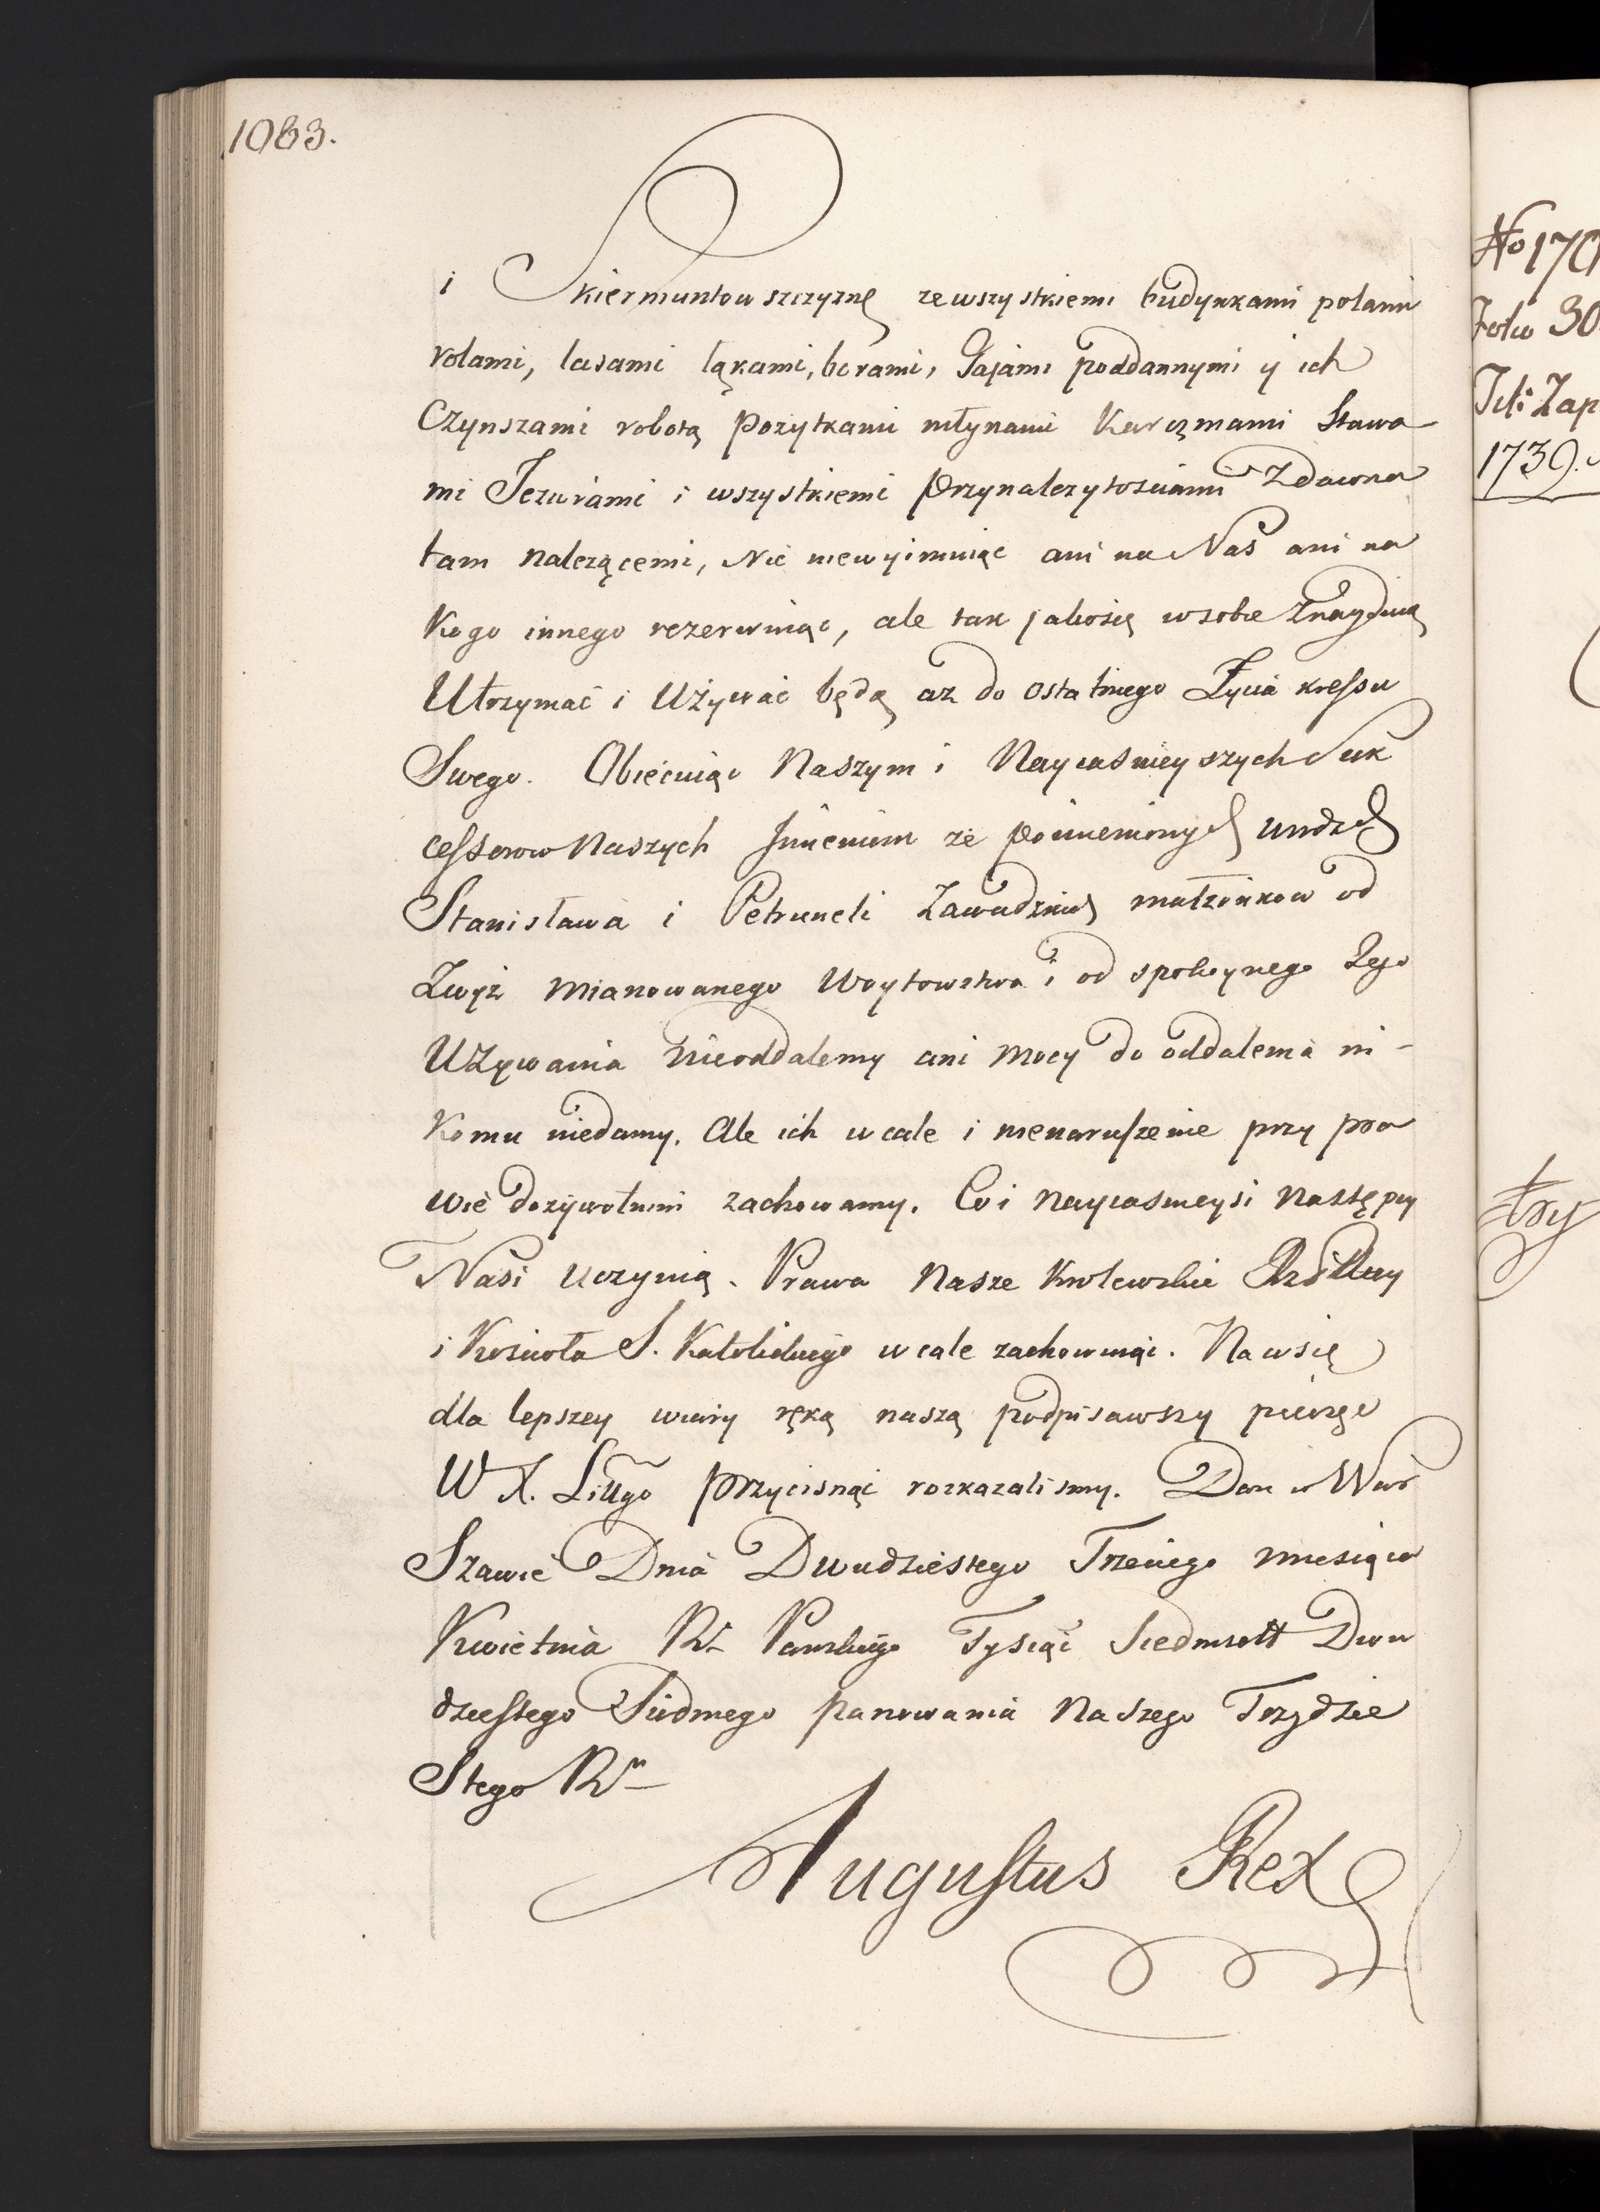 1083.
i Skiermuntowszczyznę ze wszystkiemi budynkami polami
rolami, lasami łąkami, borami, Gajami poddannymi y ich
Czynszami robotą pożytkami młynami Karczmami Stawa
mi Jezurami i wszystkiemi Przynalezytosciami Zdawna
tam nalezącemi, Nic niewyimuiąc ani na Nas ani na
Kogo innego rezerwuiąc, ale tak jako się w sobie Znayduią
Utrzymać i Używać będą az do ostatniego Życia kressu
Swego. Obiecuiąc Naszym i Nayiasnieyszych Suk
cessorow Naszych Imieniem ze pomienionych urodzch
Stanisława i Petruneli Zawadzkich małżonkow od
Zwyż mianowanego Woytowstwa i od spokoynego Jego
Używania nieoddalemy ani mocy do oddalenia ni-
Komu niedamy. Ale ich w cale i nienaruszenie przy pra
wie dożywotnim zachowamy. Co i nayiasnieysi Następcy
Nasi uczynią. Prawa Nasze Krolewskie
i Koscioła S. Katolickiego w cale zachowuiąc. Na co się
dla lepszey wiary ręką naszą podpisawszy pieczęc
W X. Littgo przycisnąć rozkazalismy. Dan w War
Szawie Dnia Dwudziestego Trzeciego miesiąca
Kwietnia Ru Panskiego Tysiąc Siedmsett Dwu
dziestego Siodmego panowania Naszego Trzydzie
Stego Ru
Augustus Rex
No 170
Folio 30
1739.